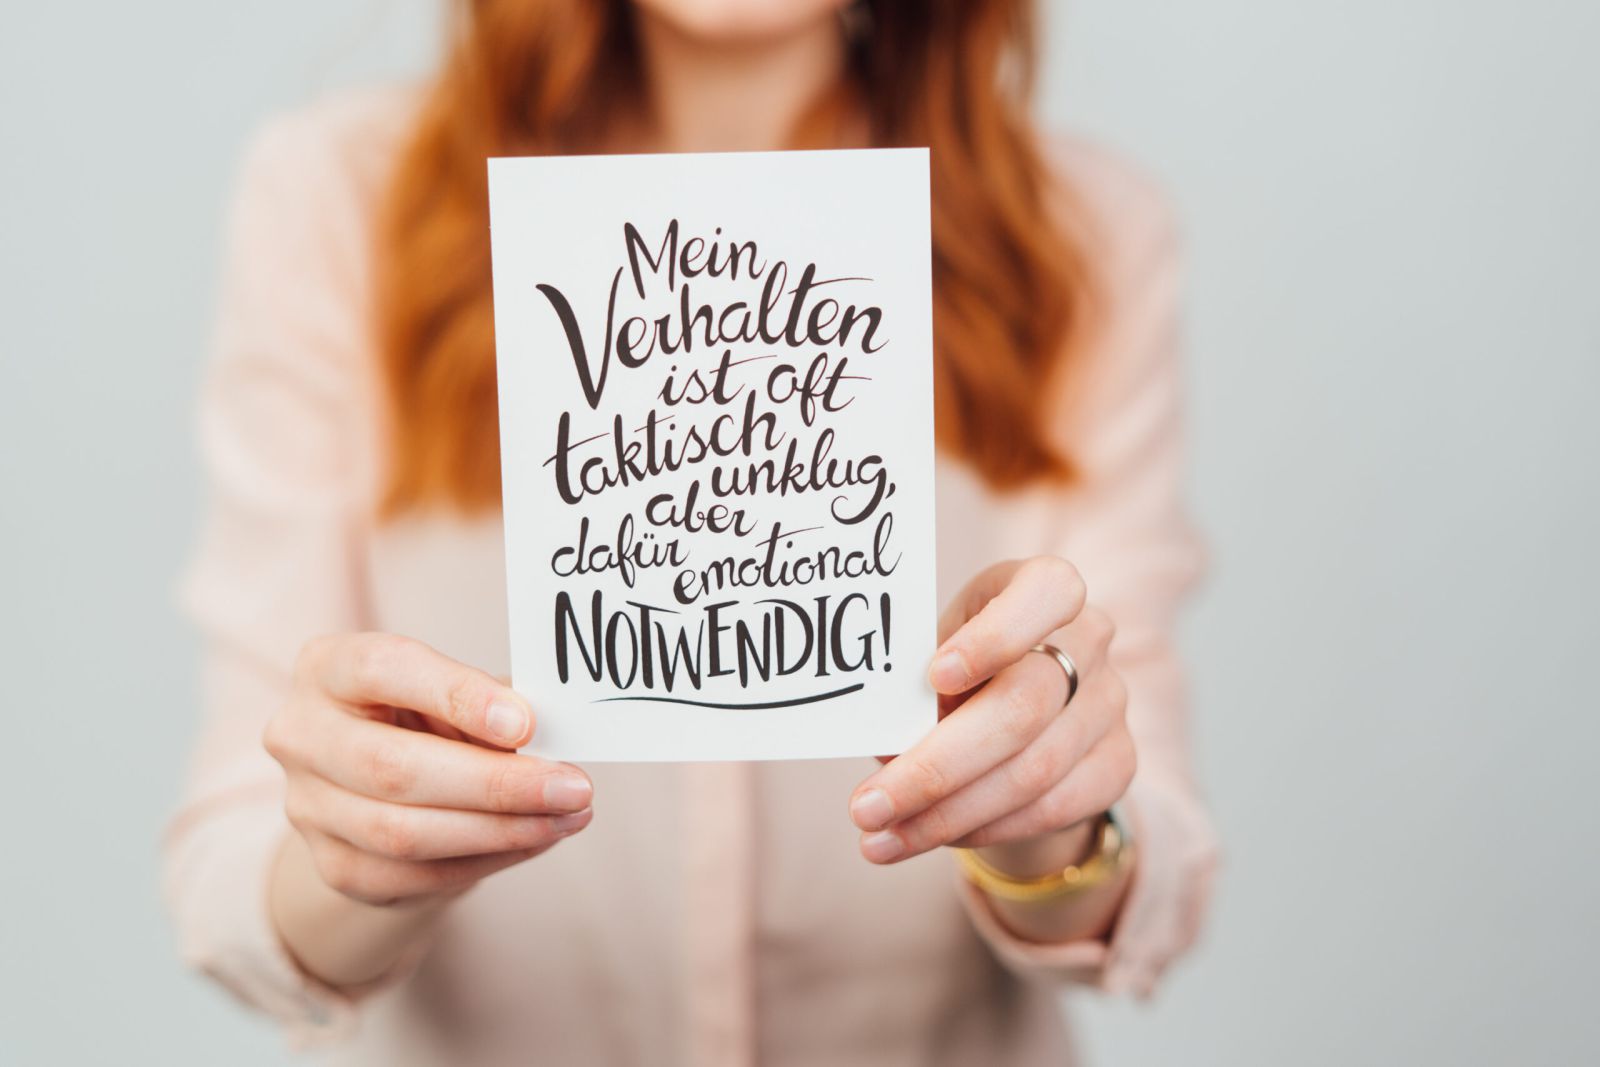 Mein
Verhalten
ist oft
taktisch
unklug,
aber
dafür
emotional
NOTWENDIG!